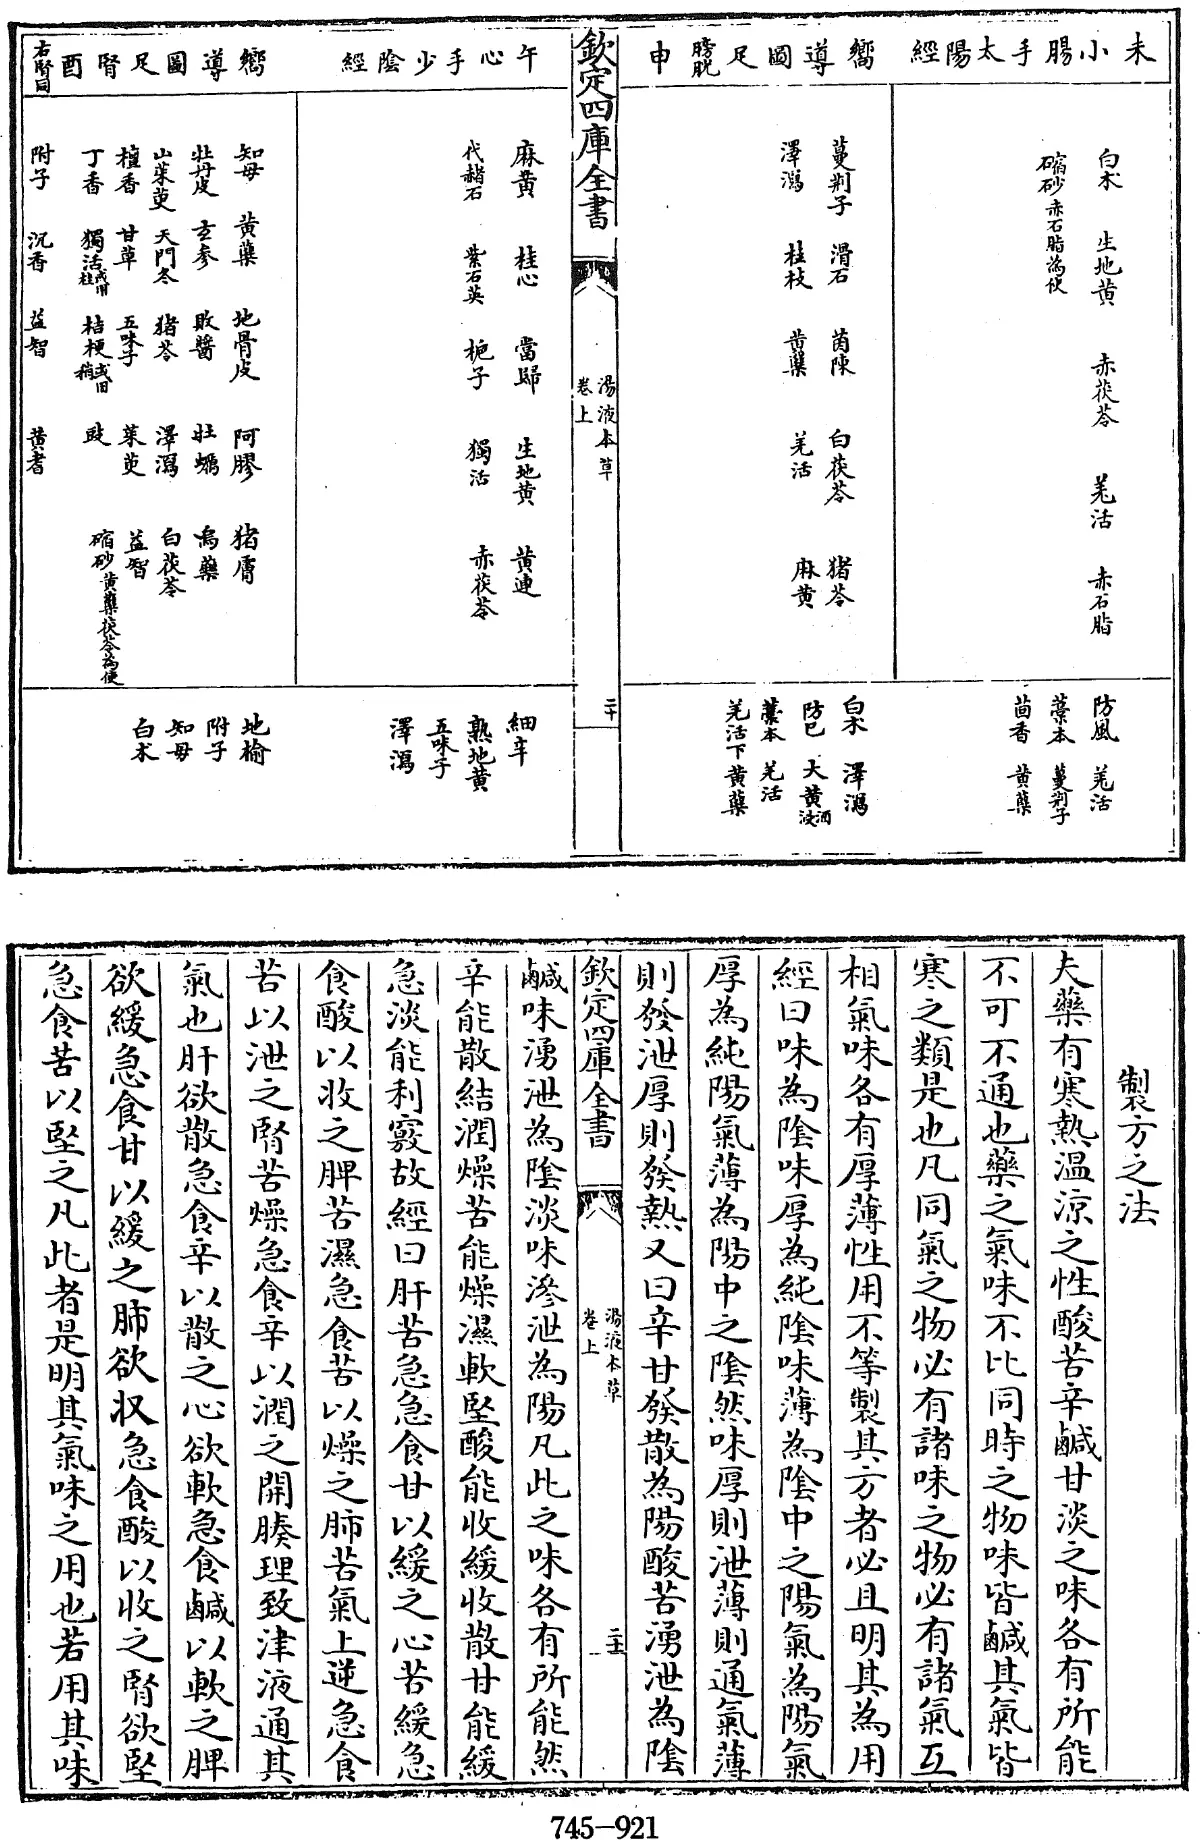 未小腸手太陽經
白朮 生地黃 赤茯苓 羌活 赤石脂
縮砂赤石脂為使
防風 羌活
藁本 蔓荆子
茴香 黃蘗
嚮導圖足膀胱申
蔓荆子 滑石 茵陳 白茯苓 猪苓
澤瀉 桂枝 黃蘗 羌活 麻黃
白朮 澤瀉
防己 大黃酒浸
藁本 羌活
羌活下黃蘗
欽定四庫全書
湯液本草
卷上
二十
午心手少陰經
麻黃 桂心 當歸 生地黃 黃連
代赭石 紫石英 梔子 獨活 赤茯苓
細辛
熟地黃
五味子
澤瀉
嚮導圖足腎酉
右腎同
知母 黃蘗 地骨皮 阿膠 猪膚
牡丹皮 玄參 敗醬 牡蠣 烏藥
山茱萸 天門冬 猪苓 澤瀉 白茯苓
檀香 甘草 五味子 茱萸 益智
丁香 獨活或用桂 桔梗或用稍 豉 縮砂黃蘗茯苓為使
附子 沉香 益智 黃耆
地榆
附子
知母
白朮
製方之法
夫藥有寒熱温涼之性酸苦辛鹹甘淡之味各有所能
不可不通也藥之氣味不比同時之物味皆鹹其氣皆
寒之類是也凡同氣之物必有諸味之物必有諸氣互
相氣味各有厚薄性用不等製其方者必且明其為用
經曰味為陰味厚為純陰味薄為陰中之陽氣為陽氣
厚為純陽氣薄為陽中之陰然味厚則泄薄則通氣薄
則發泄厚則發熱又曰辛甘發散為陽酸苦湧泄為陰
欽定四庫全書
湯液本草
卷上
二十一
鹹味湧泄為陰淡味滲泄為陽凡此之味各有所能然
辛能散結潤燥苦能燥濕軟堅酸能收緩收散甘能緩
急淡能利竅故經曰肝苦急急食甘以緩之心苦緩急
食酸以收之脾苦濕急食苦以燥之肺苦氣上逆急食
苦以泄之腎苦燥急食辛以潤之開腠理致津液通其
氣也肝欲散急食辛以散之心欲軟急食鹹以軟之脾
欲緩急食甘以緩之肺欲収急食酸以收之腎欲堅
急食苦以堅之凡此者是明其氣味之用也若用其味
745-921